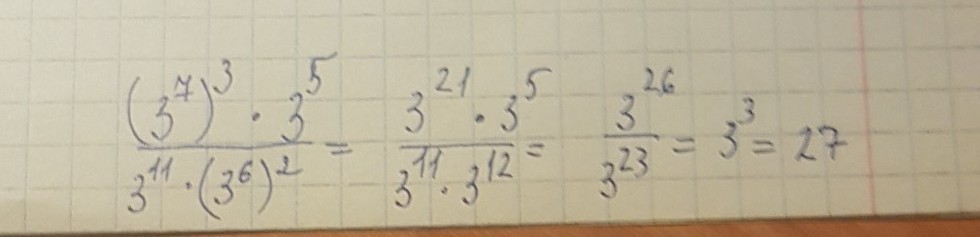 \frac{(3^7)^3 \cdot 3^5}{3^{11} \cdot (3^6)^2} = \frac{3^{21} \cdot 3^5}{3^{11} \cdot 3^{12}} = \frac{3^{26}}{3^{23}} = 3^3 = 27